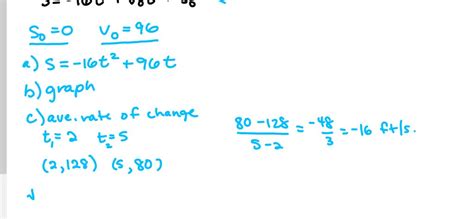 S₀=0 V₀=96
a) S=-16t²+96t
b) graph
c) ave. rate of change
t₁=2 t₂=5
(2,128) (5,80)
80-128 / 5-2 = -48/3 = -16 ft/s.
d